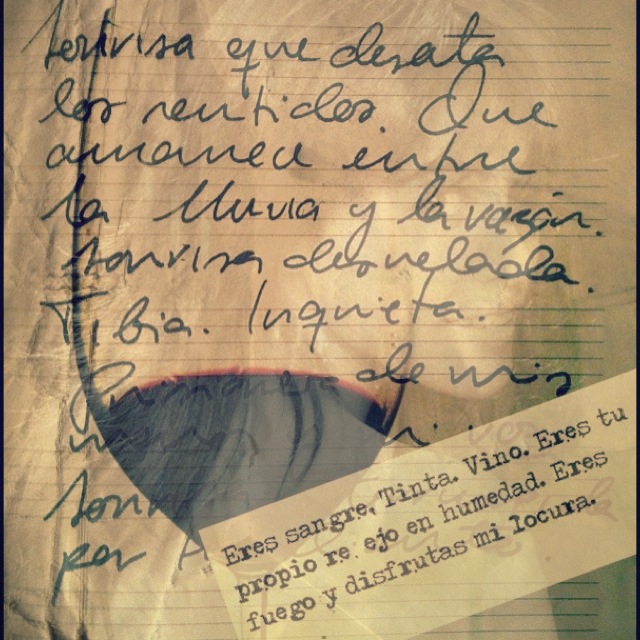 sonrisa que desata
los sentidos. Que
amanece entre
la lluvia y la razón.
sonrisa desvelada.
Tibia. Inquieta.
de mis
por
Eres sangre. Tinta. Vino. Eres tu
propio re ejo en humedad. Eres
fuego y disfrutas mi locura.